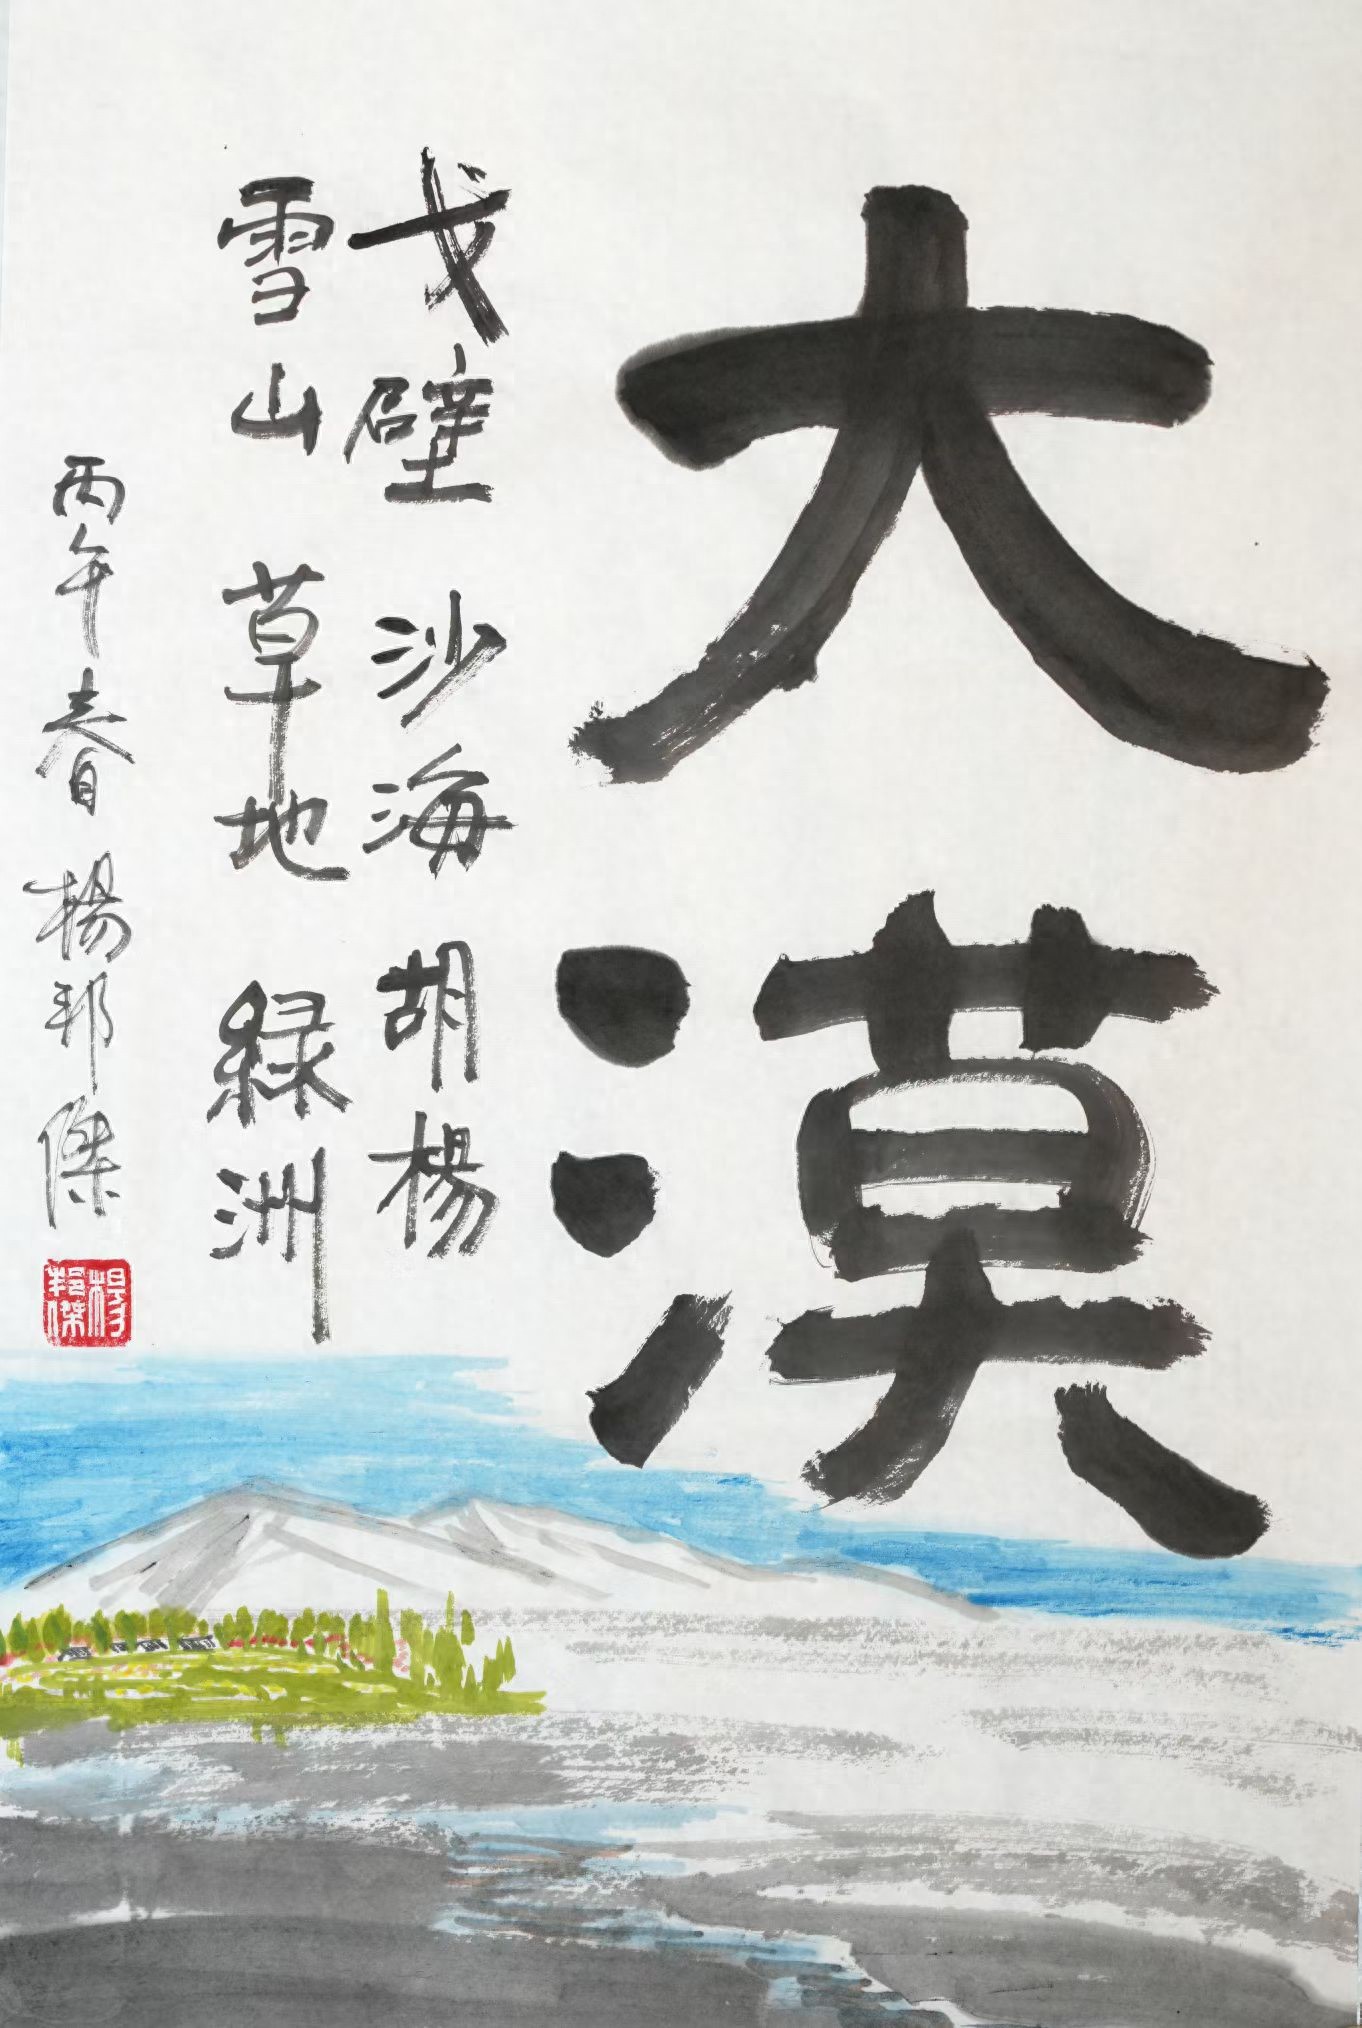 大漠
戈壁 沙海 胡楊
雪山 草地 緑洲
丙午春 楊邦傑
楊邦傑